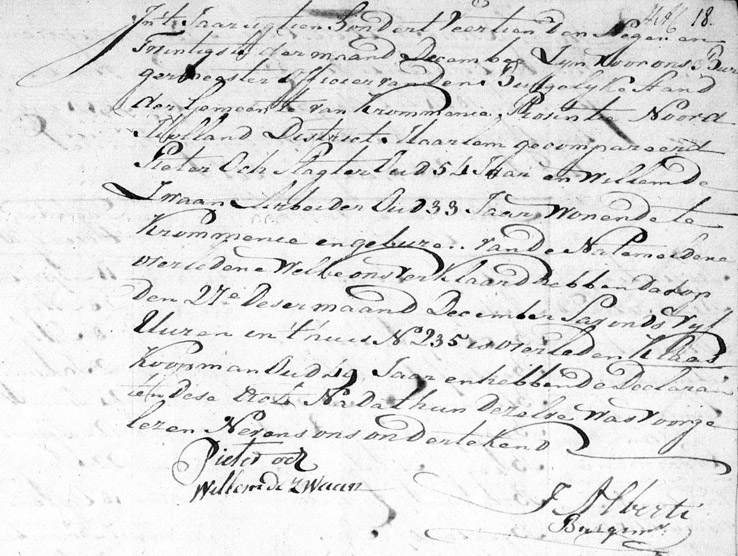 In't Jaar agtien Hondert Veertien den Negen en
Twintigste der maand December Zyn voor ons Bur
germeester officier van den Burgelyke Stand
der Gemeente van Krommenie, Provintie Noord
Holland District Haarlem gecompareerd
Pieter Och Slagter Oud 54 Jaar en Willem de
Zwaan Arbeider Oud 33 Jaar Wonende te
Krommenie en gebure.. van de Natemeldene
overledene Welke ons verklaard hebben dat op
den 27e Deser maand December S'agonds Vyf
Uuren in't huis No 235 is overleden Klaas
Koopman Oud 49 Jaar en hebben de Declaran
ten dese acte Na dat hun dezelve was voorge
lezen Nevens ons ondertekend
Pieter och
Willem de Zwaan
J Alberti
Burgemr